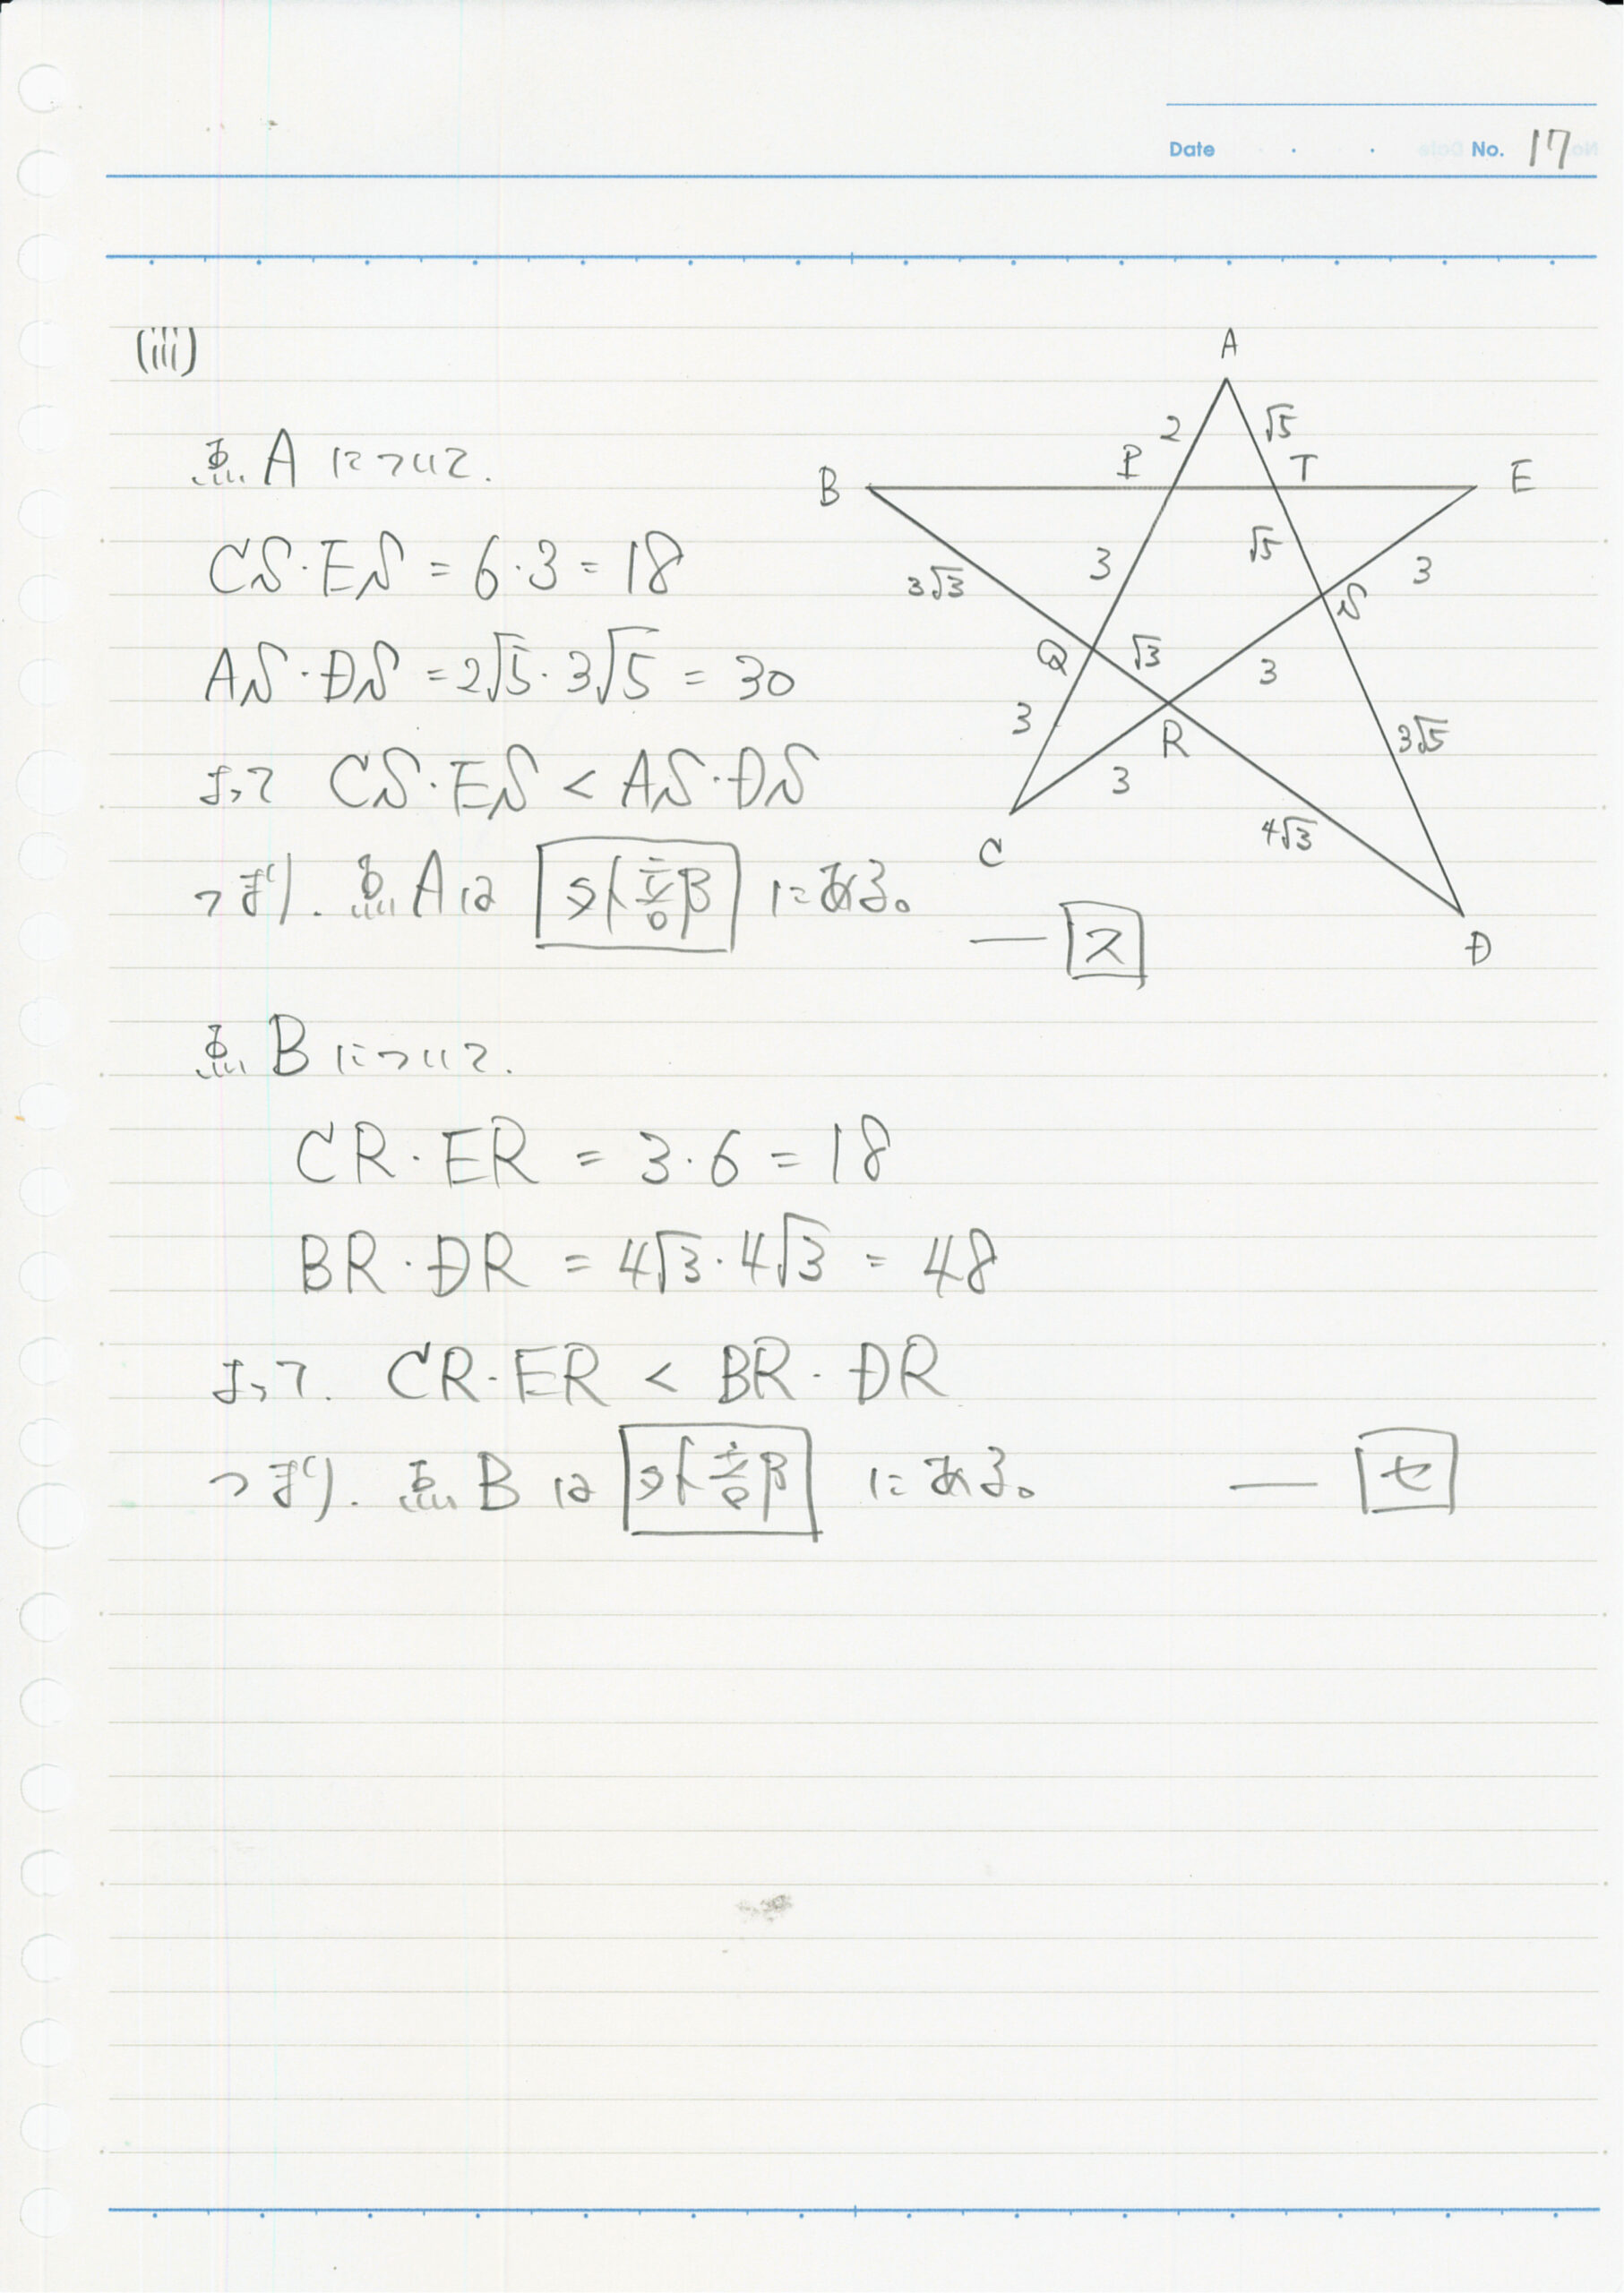 Date . . No. 17
(iii)
点Aについて.
CS・ES = 6・3 = 18
AS・DS = 2√5・3√5 = 30
よって CS・ES < AS・DS
つまり. 点Aは 外部 にある。 — ス
点Bについて.
CR・ER = 3・6 = 18
BR・DR = 4√3・4√3 = 48
よって. CR・ER < BR・DR
つまり. 点Bは 外部 にある。 — セ
A
2 √5
B P T E
3 √5 3
3√3 S
Q √3 3
3 R 3√5
3
C 4√3
D